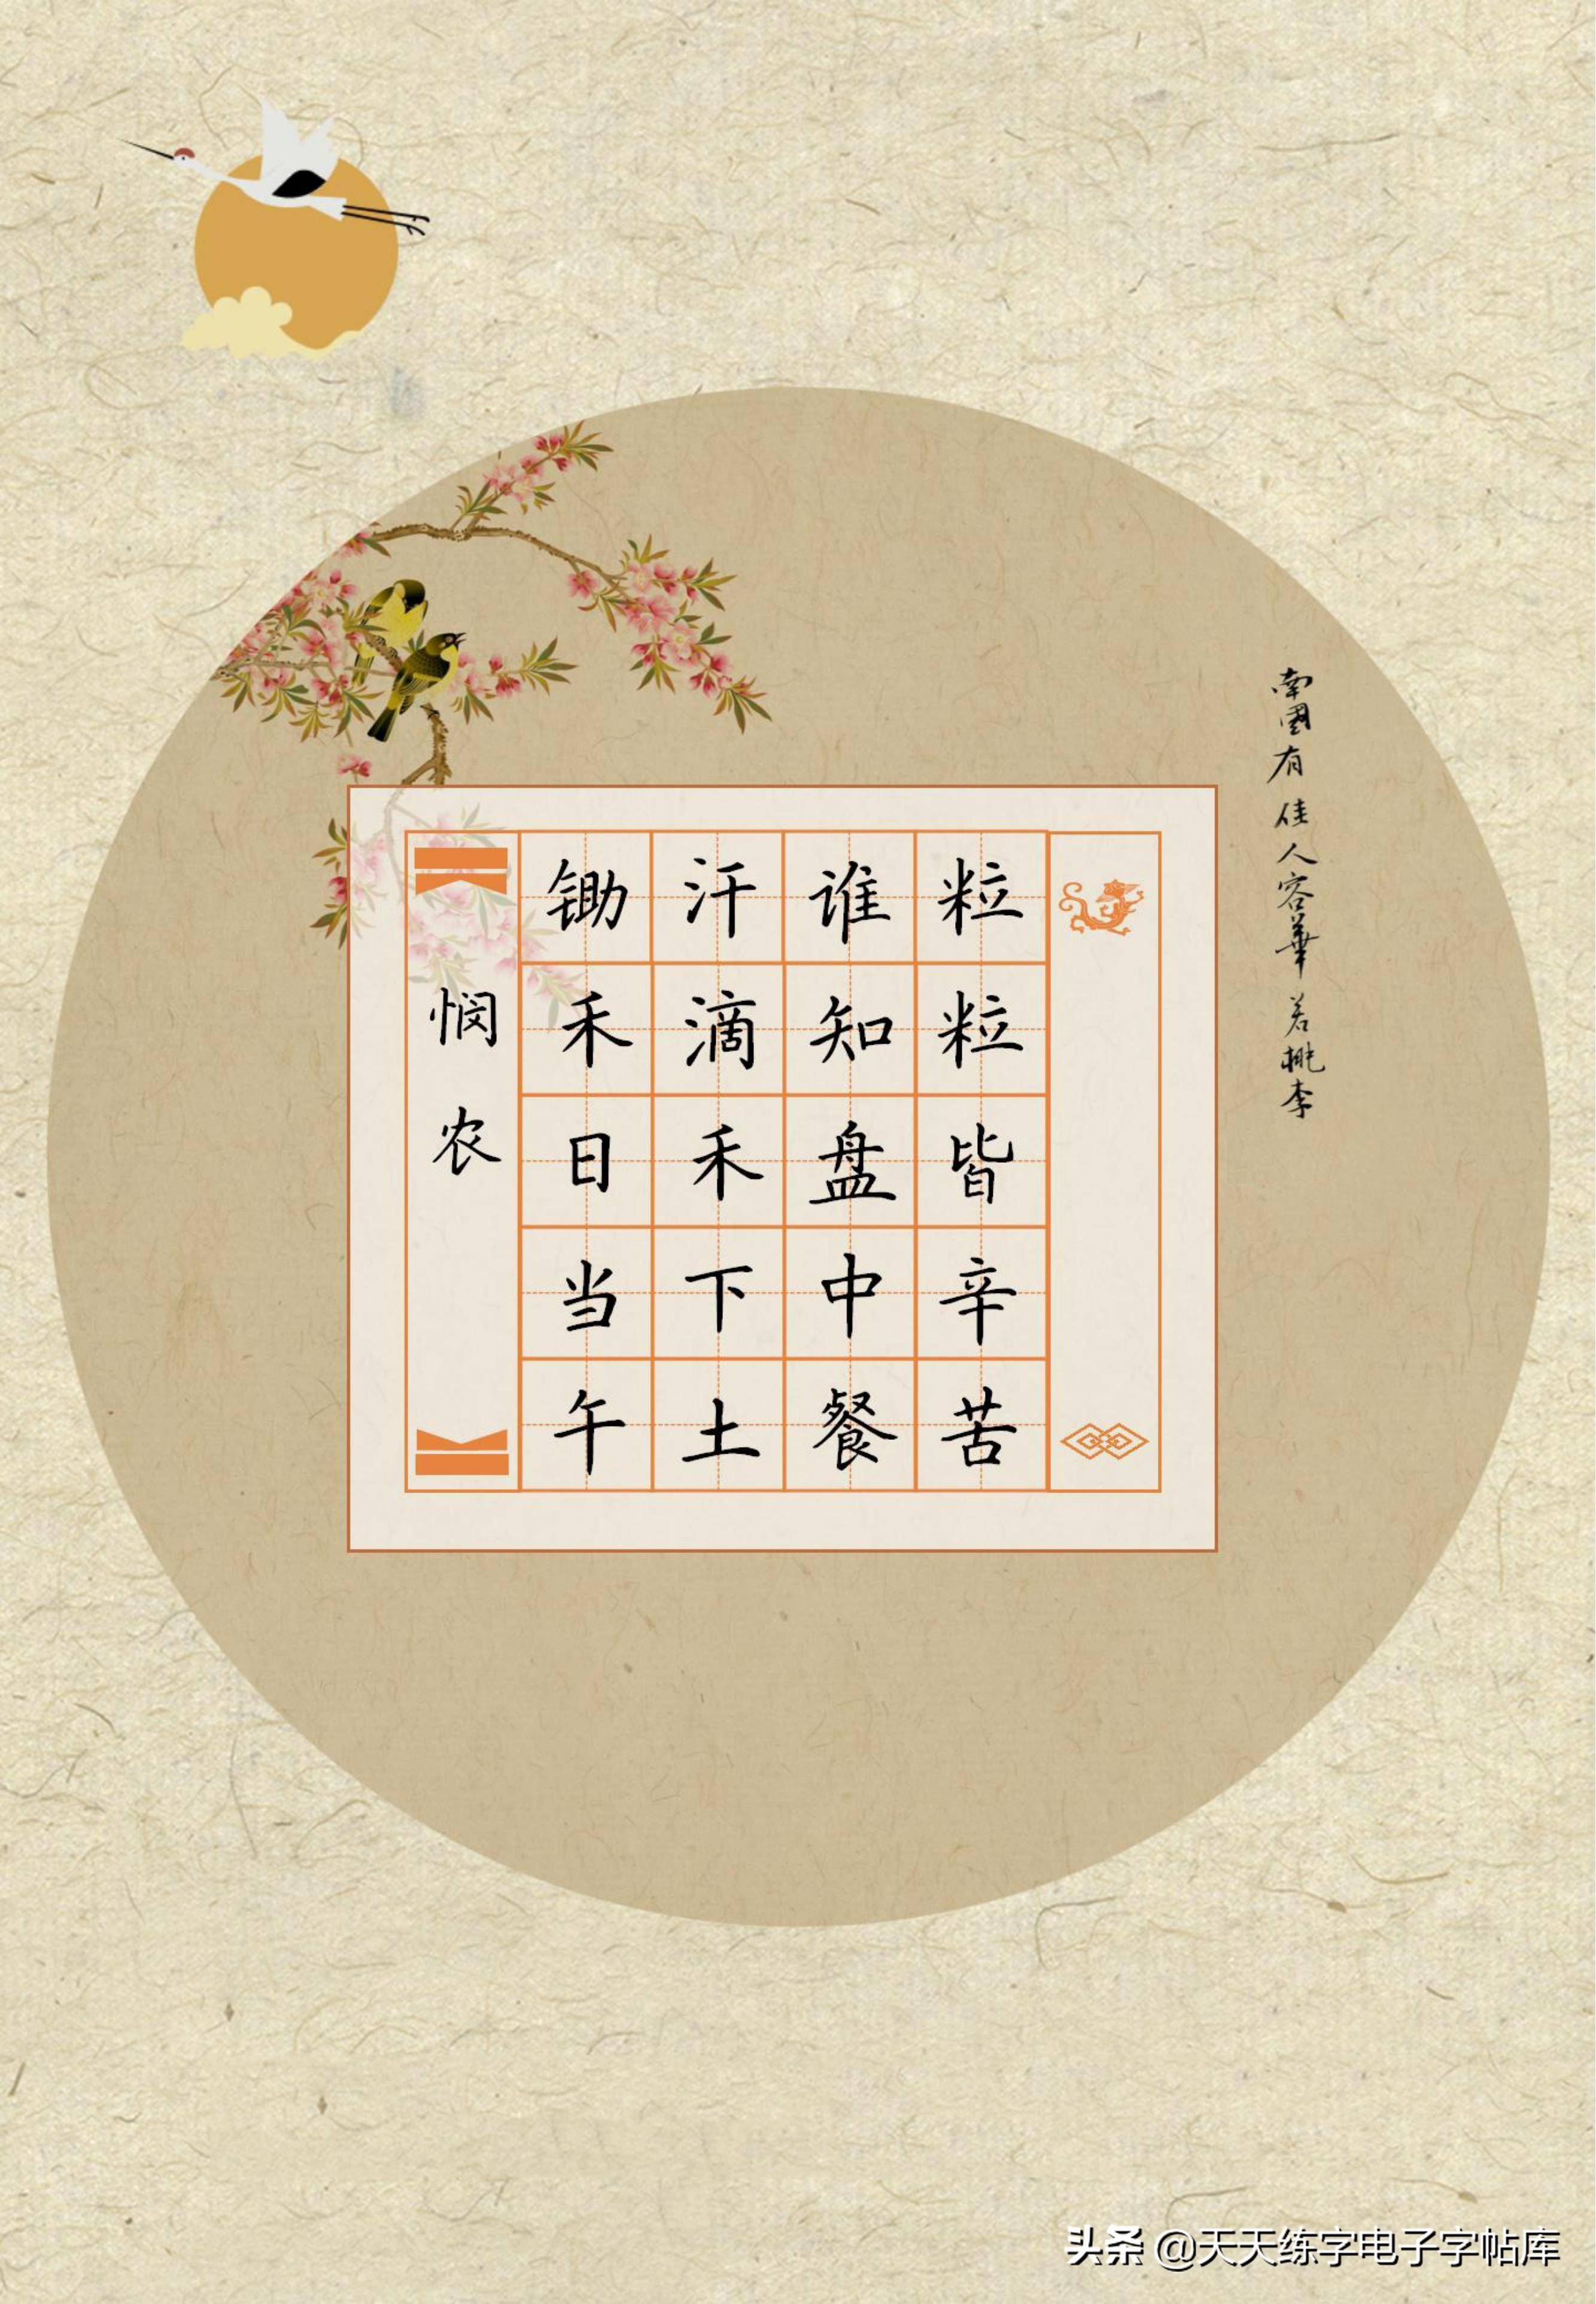 悯农
锄禾日当午
汗滴禾下土
谁知盘中餐
粒粒皆辛苦
南國有佳人容華若桃李
头条 @天天练字电子字帖库